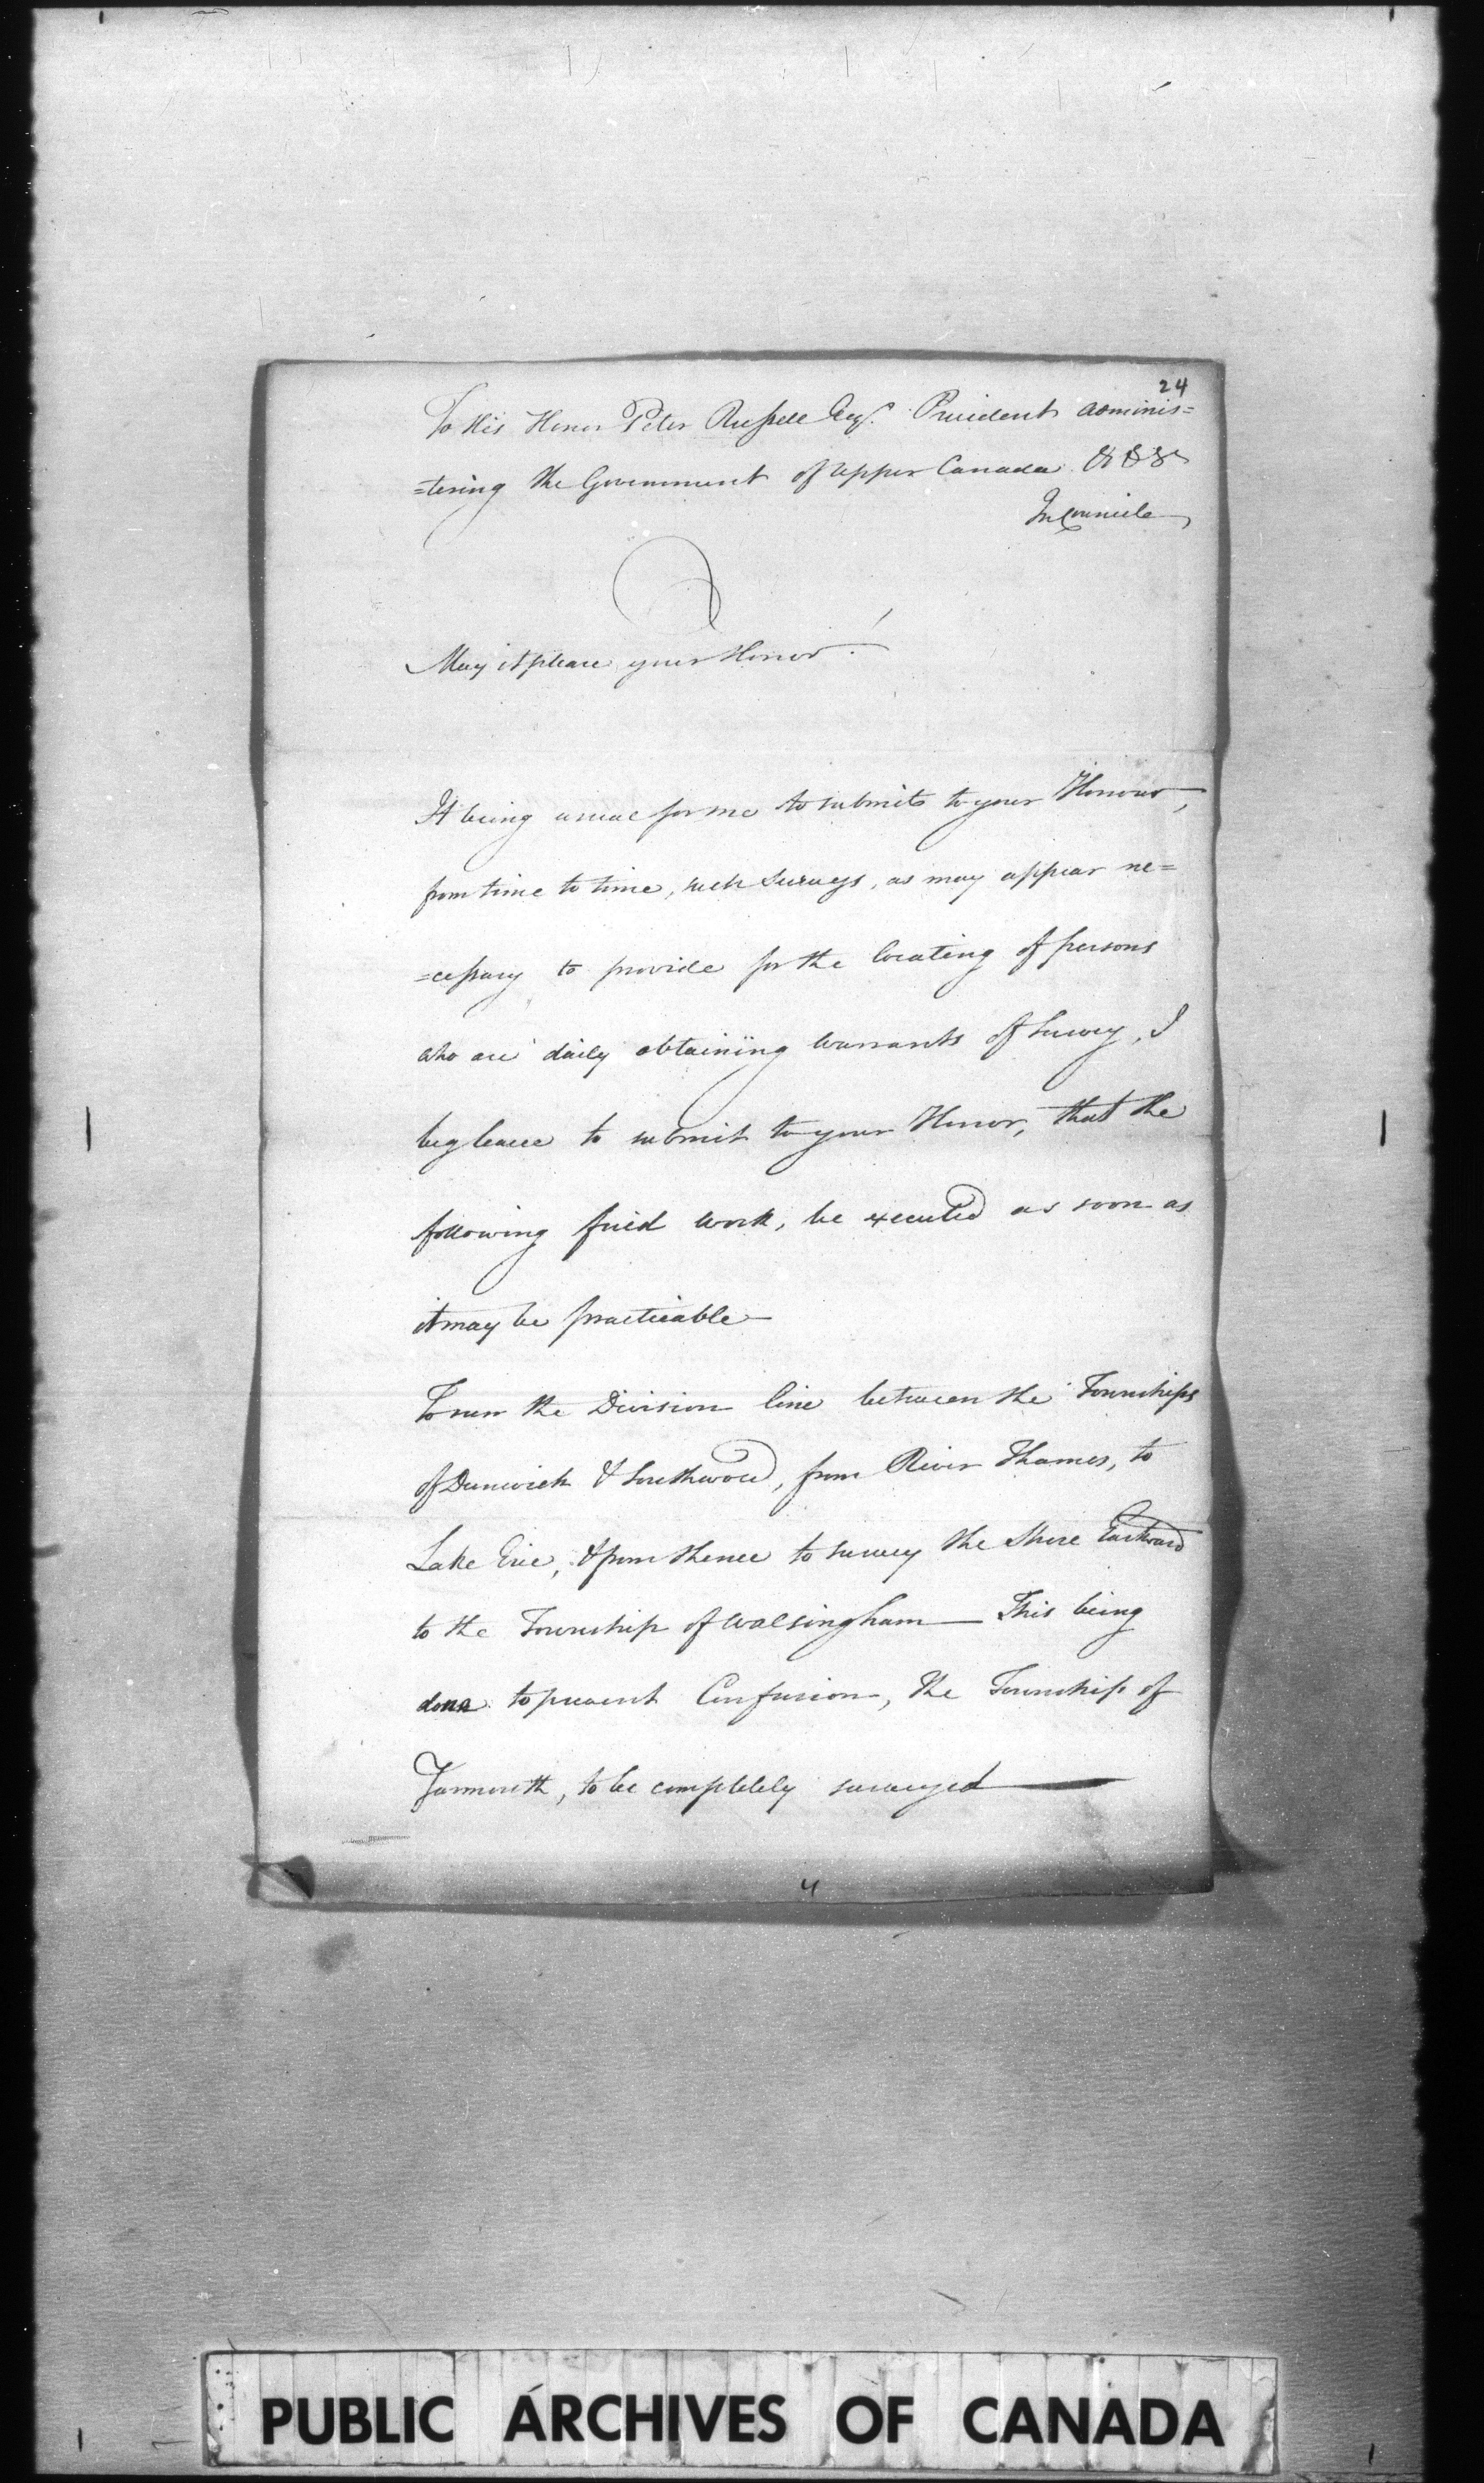 24
To His Honor Peter Russell Esqr. President adminis=
=tering the Government of Upper Canada &c &c &c
In Council
May it please your Honor!
It being usual for me to submit to your Honour,
from time to time, such Surveys, as may appear ne=
=cessary to provide for the locating of persons
who are daily obtaining Warrants of Survey, I
beg leave to submit to your Honor, that the
following field work, be executed as soon as
it may be practicable—
To run the Division line between the Townships
of Dunwich & Southwold, from River Thames, to
Lake Erie, & from thence to survey the Shore Eastward
to the Township of Walsingham — This being
done to prevent Confusion, the Township of
Yarmouth, to be completely surveyed —
4
PUBLIC ARCHIVES OF CANADA